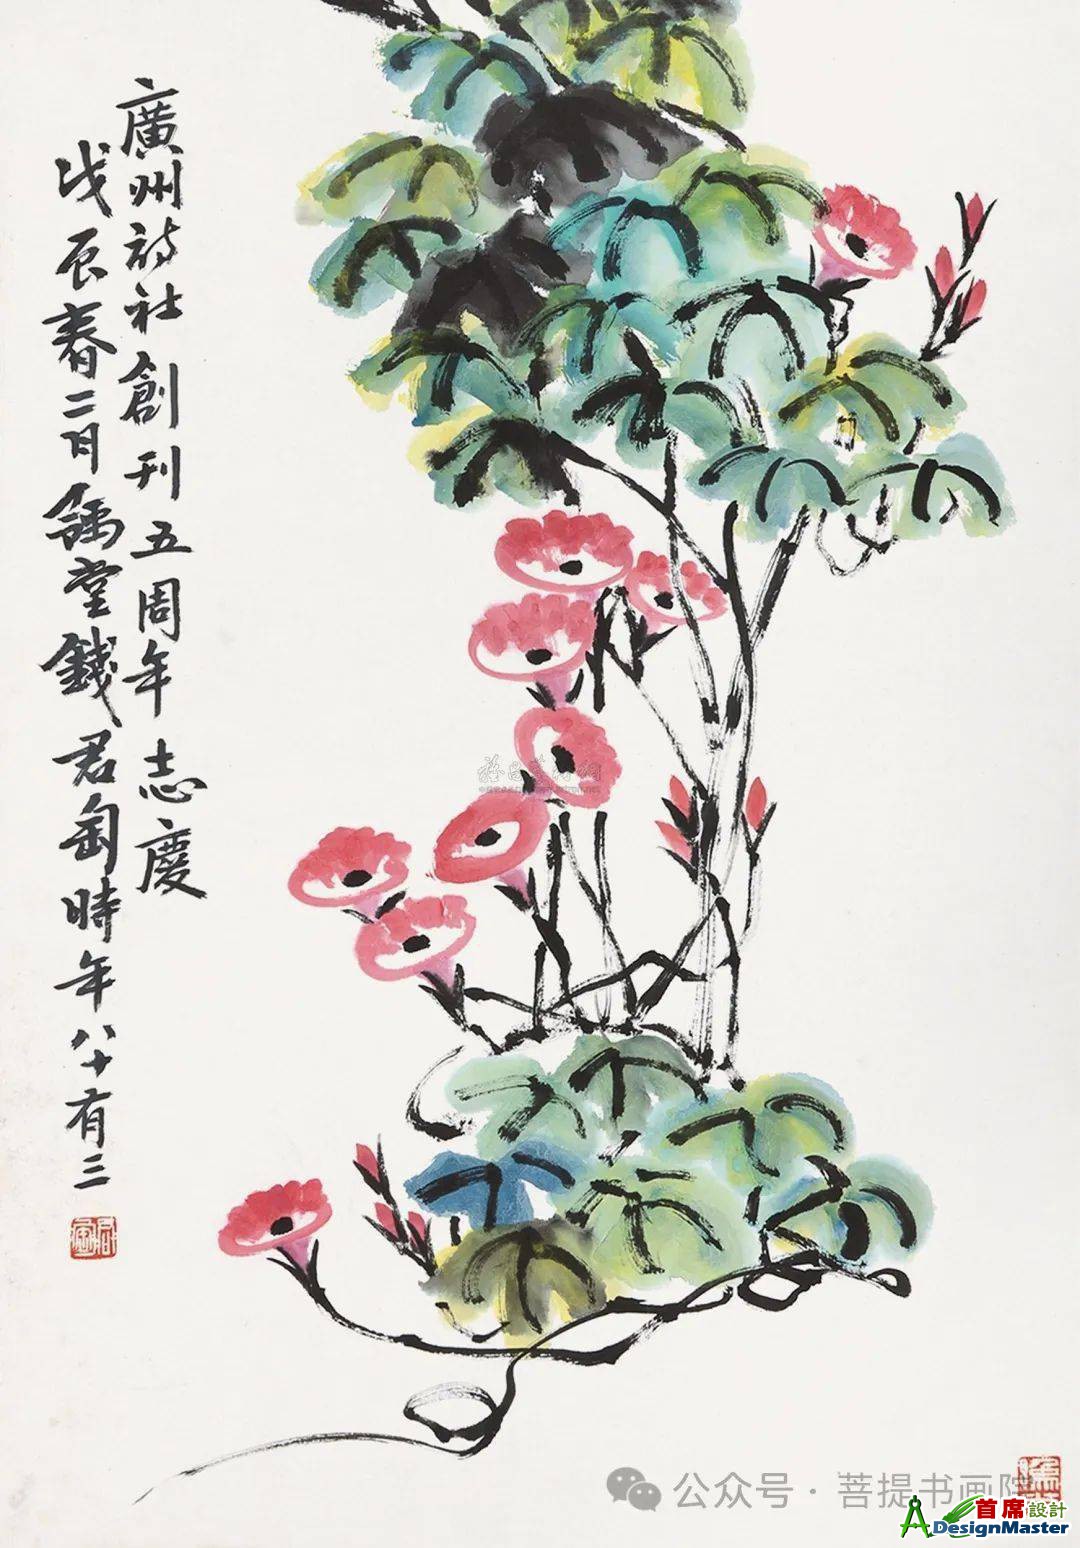 廣州詩社創刊五周年志慶
戊辰春二月豫堂錢君匋時年八十有三
公众号 · 菩提书画院
首席設計
ADesignMaster